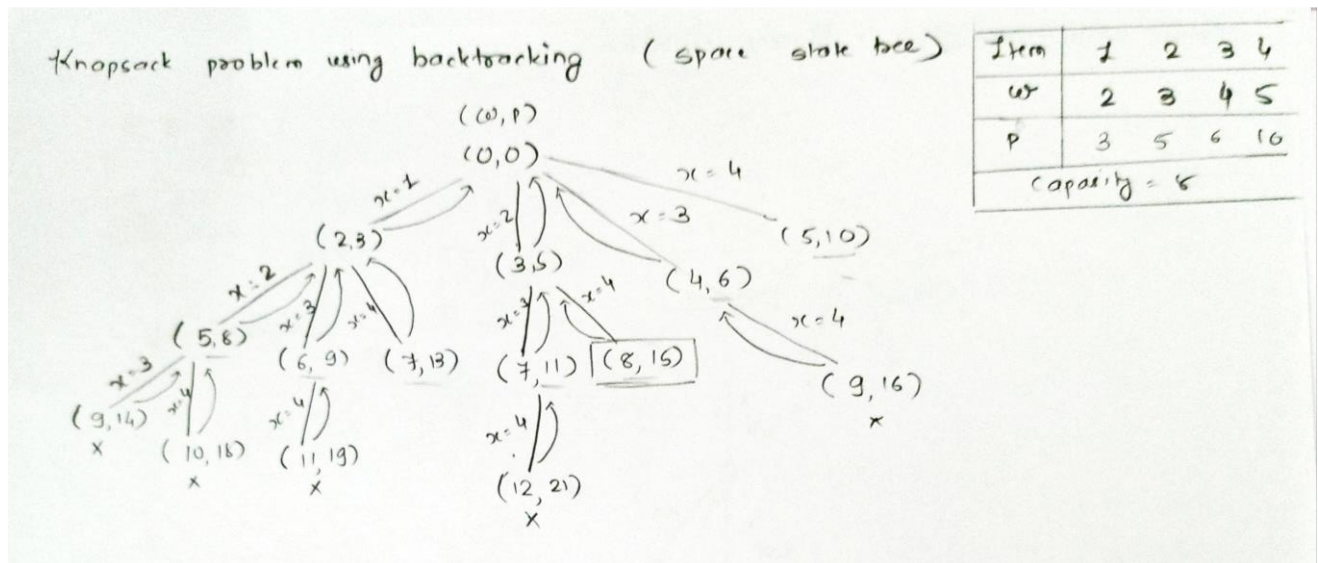 Knapsack problem using backtracking (space state tree)
Item 1 2 3 4
w 2 3 4 5
P 3 5 6 10
Capacity = 8
(w, P)
(0,0)
x=1
x=2
x=3
x=4
(2,3)
(3,5)
(4,6)
(5,10)
x=2
x=3
x=4
x=3
x=4
x=4
(5,8)
(6,9)
(7,13)
(7,11)
(8,15)
(9,16)
x
x=3
x=4
x=4
x=4
(9,14)
x
(10,18)
x
(11,19)
x
(12,21)
x